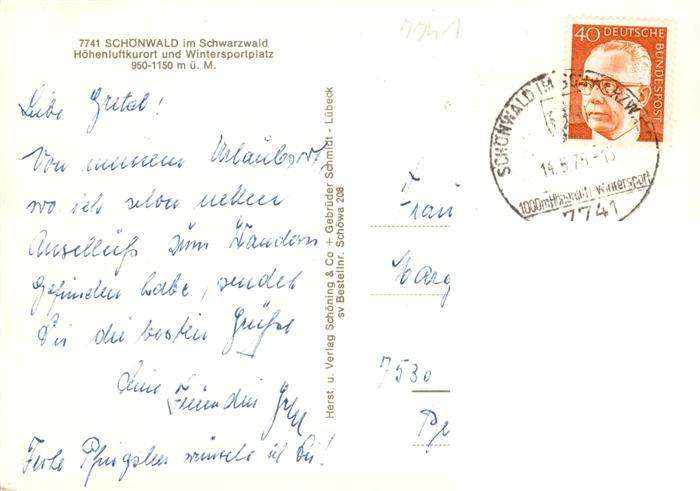 7741
7741 SCHÖNWALD im Schwarzwald
Höhenluftkurort und Wintersportplatz
950-1150 m ü. M.
Liebe Gretel!
Von meinem Urlaubsort,
wo ich schon netten
Anschluß zum Wandern
gefunden habe, sendet
Dir die besten Grüße
Deine
Freundin
Frohe Pfingsten wünsche ich Dir!
Herst. u. Verlag Schöning & Co + Gebrüder Schmidt - Lübeck
sv Bestellnr. Schöwa 208
40 DEUTSCHE BUNDESPOST
SCHÖNWALD IM SCHWARZWA
14.5.75-1
1000m Wintersport
7741
Frau
Marg
7530